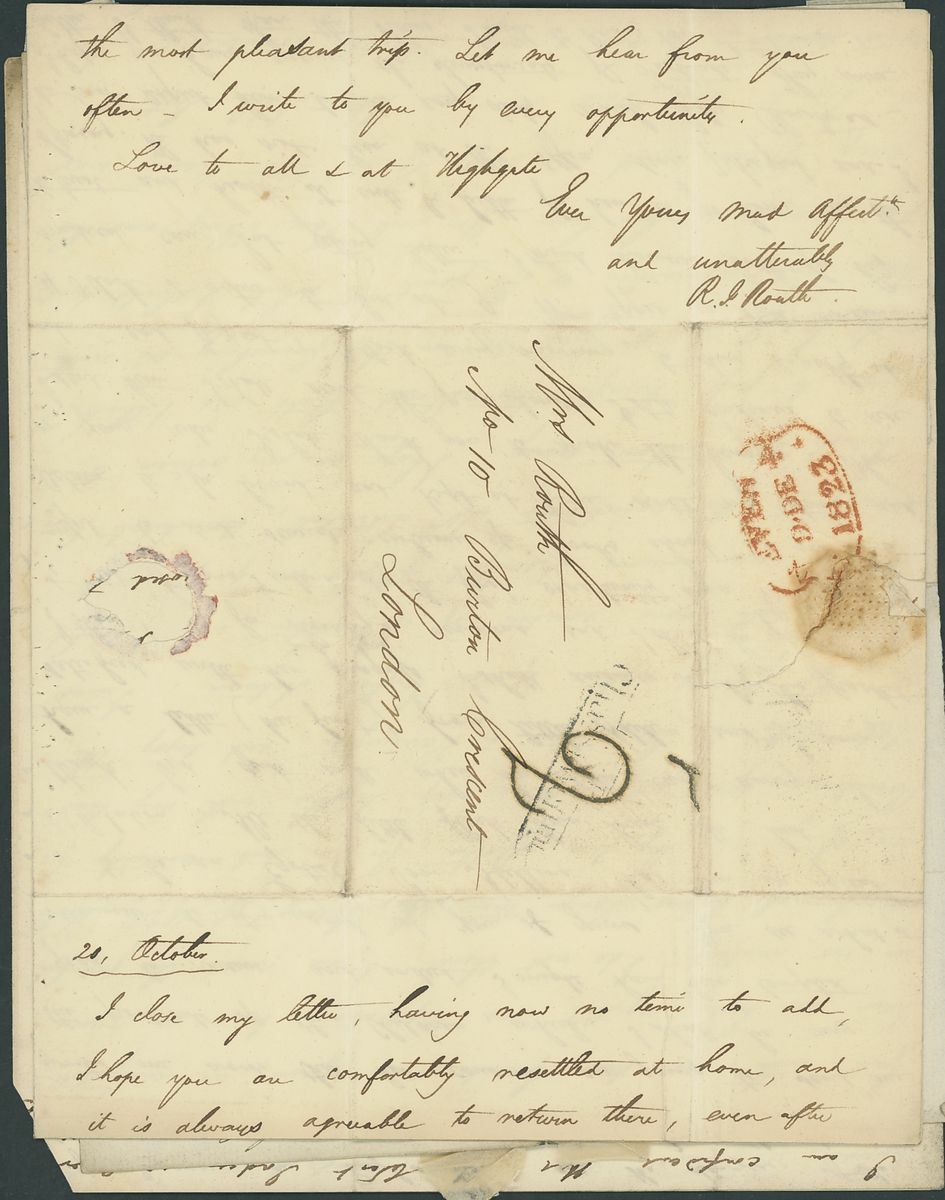 the most pleasant trip. Let me hear from you
often – I write to you by every opportunity.
Love to all & at Highgate
Ever Yours most Affect.
and unalterably
R. I. Routh.
Mrs Routh
No 10 Burton Crescent
London.
EVEN
9 DE
1823
20, October.
I close my letter, having now no time to add,
I hope you are comfortably resettled at home, and
it is always agreeable to return there, even after
I am confident that